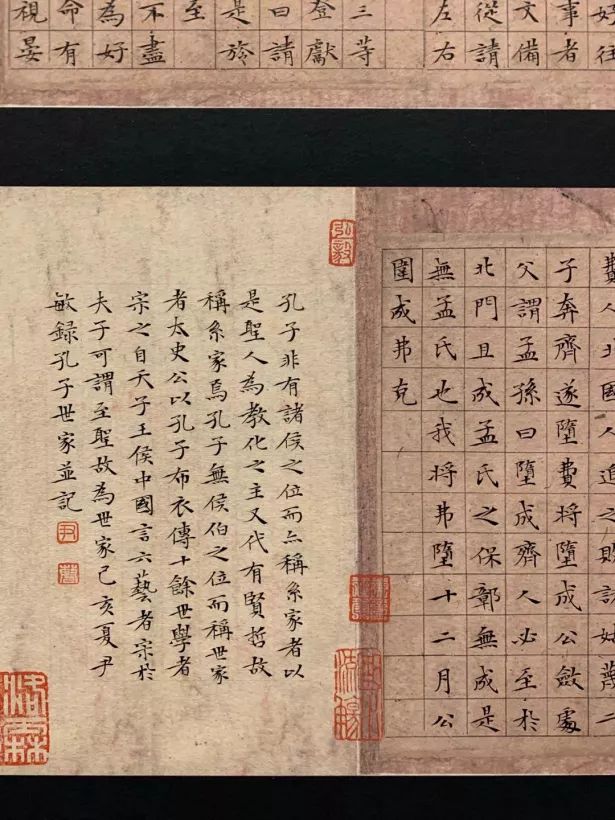 事者
文備
從請
左右
三等
登獻
曰請
是於
至
不盡
為好
命有
視晏
費人北國人追之敗諸姑蔑二
子奔齊遂墮費將墮成公斂處
父謂孟孫曰墮成齊人必至於
北門且成孟氏之保鄣無成是
無孟氏也我將弗墮十二月公
圍成弗克
弘毅
孔子非有諸侯之位而亦稱系家者以
是聖人為教化之主又代有賢哲故
稱系家焉孔子無侯伯之位而稱世家
者太史公以孔子布衣傳十餘世學者
宗之自天子王侯中國言六藝者宗於
夫子可謂至聖故為世家己亥夏尹
敏錄孔子世家並記
尹